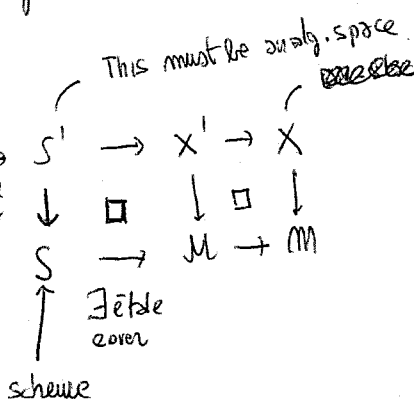 This must be an alg. space
S' → X' → X
↓ □ ↓ □ ↓
S → M → m
∃ étale
cover
scheme